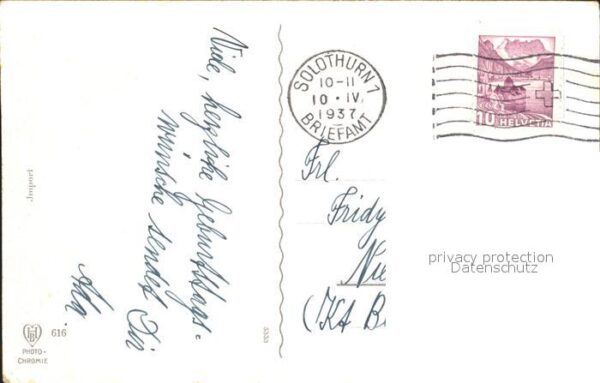 Viele, herzliche Geburtstags-
wünsche sendet Dir
Import
616
PHOTO-
CHROMIE
5353
SOLOTHURN 1
10-11
10·IV.
1937
BRIEFAMT
10 HELVETIA
Frl.
Fridy
Nie
(Kt. B
privacy protection
Datenschutz